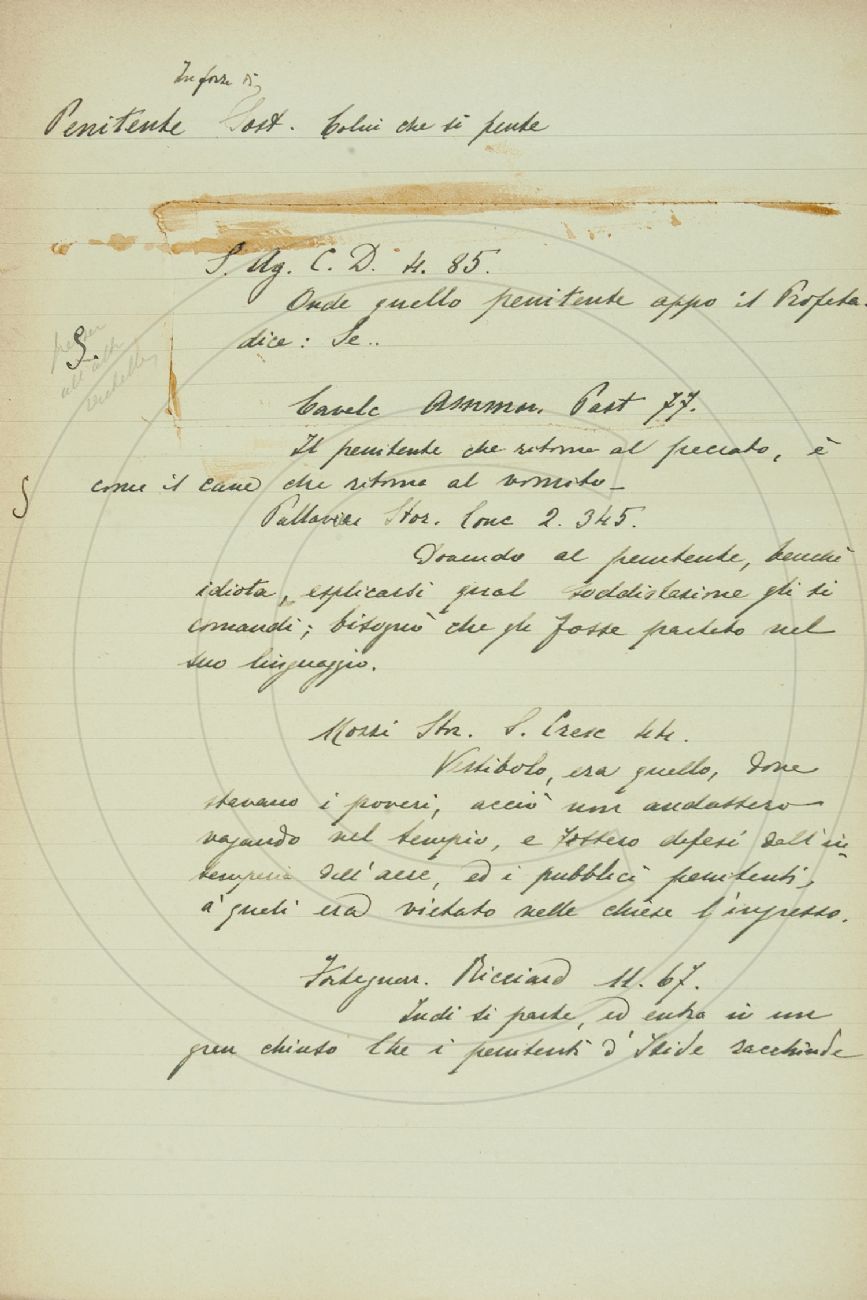 In forza di
Penitente Sost. Colui che si pente
S. Ag. C. D. 4. 85.
Onde quello penitente appo il Profeta
dice: Se..
§.
Cavalc Ammon. Past 77.
Il penitente che ritorna al peccato, è
come il cane che ritorna al vomito_
Pallavic Stor. Conc 2. 345.
Dovendo al penitente, benchè
idiota, esplicarsi qual soddisfazione gli si
comandi; bisognò che gli fosse parlato nel
suo linguaggio.
Mozzi Stor. S. Cresc 44.
Vestibolo, era quello, dove
stavano i poveri, acciò non andassero
vagando nel tempio, e fossero difesi dall'in-
temperie dell'aere, ed i pubblici penitenti,
a' quali era vietato nelle chiese l'ingresso.
Forteguer. Ricciard 11. 67.
Indi si parte, ed entra in un
gran chiuso Che i penitenti d'Iside racchiude